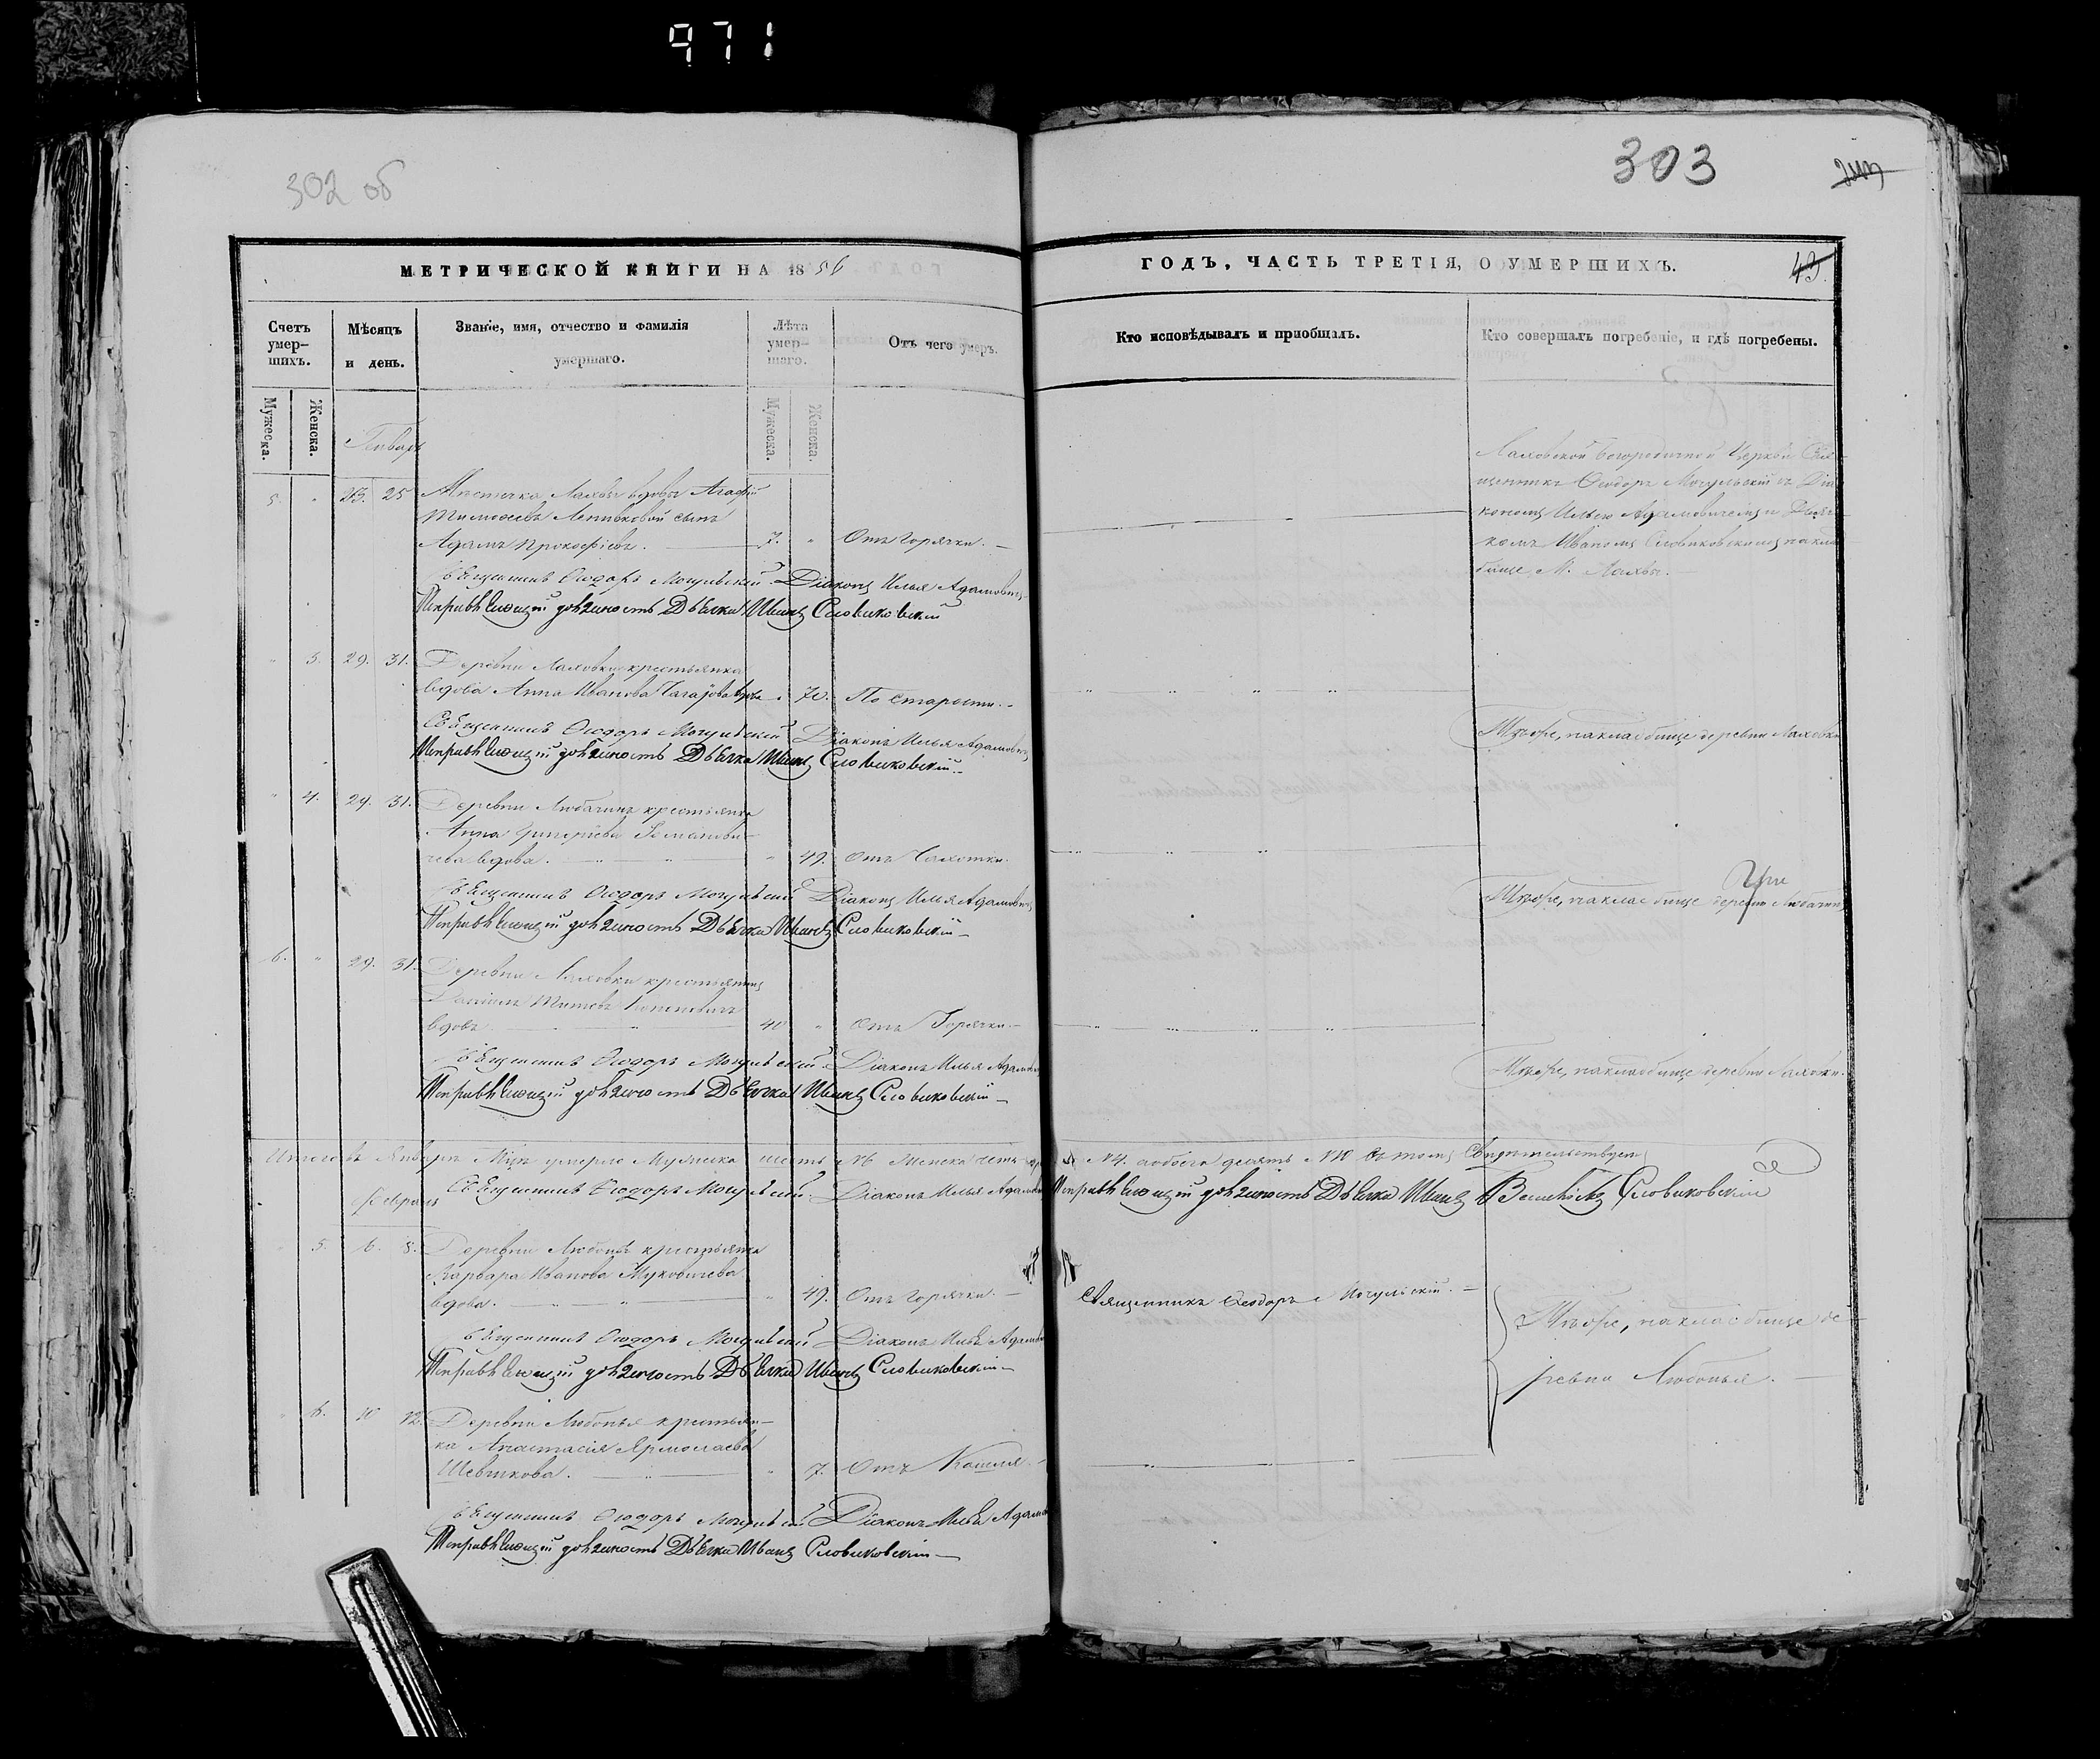 971
302 об
МЕТРИЧЕСКОЙ КНИГИ НА 1856
Счетъ умер-шихъ.
Мѣсяцъ и день.
Званіе, имя, отчество и фамилія умершаго.
Лѣта умер-шаго.
Отъ чего умеръ.
Мужеска.
Женска.
Мужеска.
Женска.
Генварь
5. " 23. 25 Мѣстечка Лахвы вдовы Агафіи
Тимофеевъ сынъ
Адамъ Прокофіевъ. 7. " Отъ горячки.
Священникъ Ѳеодоръ Могульскій Діаконъ Илья Адамовичъ
Исправляющій должность Дьячка Иванъ Словиковскій
" 3. 29. 31. Деревни Лаховки крестьянка
вдова Анна Иванова 70. По старости.
Священникъ Ѳеодоръ Могульскій Діаконъ Илья Адамовичъ
Исправляющій должность Дьячка Иванъ Словиковскій
" 4. 29. 31. Деревни Любачинъ крестьянка
Анна Григоріева
вдова. " 49. Отъ Чахотки.
Священникъ Ѳеодоръ Могульскій Діаконъ Илья Адамовичъ
Исправляющій должность Дьячка Иванъ Словиковскій
6. " 29. 31. Деревни Лаховки крестьянинъ
Даніилъ Титовъ
вдовъ 40 " Отъ Горячки
Священникъ Ѳеодоръ Могульскій Діаконъ Илья Адамовичъ
Исправляющій должность Дьячка Иванъ Словиковскій
Итого въ Январѣ М-цѣ умерло Мужеска шесть №6 Женска четыре
Февраль
Священникъ Ѳеодоръ Могульскій Діаконъ Илья Адамовичъ
" 5. 6. 8. Деревни крестьянка
Варвара Иванова
вдова. " 49. Отъ горячки.
Священникъ Ѳеодоръ Могульскій Діаконъ Илья Адамовичъ
Исправляющій должность Дьячка Иванъ Словиковскій
" 6. 10 12. Деревни Любонья крестьян-
ка Анастасія Ярмолаева
Шевчикова. " 7. Отъ Кашля.
Священникъ Ѳеодоръ Могульскій Діаконъ Илья
Исправляющій должность Дьячка Иванъ Словиковскій
303
ГОДЪ, ЧАСТЬ ТРЕТІЯ, О УМЕРШИХЪ.
43.
Кто исповѣдывалъ и пріобщалъ.
Кто совершалъ погребеніе, и гдѣ погребены.
Лаховской Богородичной Церкви Свя-
щенникъ Ѳеодоръ Могульскій съ Діа-
кономъ Ильею Адамовичемъ и Дьяч-
комъ Иваномъ Словиковскимъ на клад-
бище М. Лахвы.
Тѣже, на кладбище деревни Лаховки
Тѣже, на кладбище деревни Любачинъ
Тѣже, на кладбище деревни Лаховки.
№4. а обоего десять №10 въ томъ Свидетельствуемъ
Исправляющій должность Дьячка Иванъ Словиковскій
Священникъ Ѳеодоръ Могульскій.
Тѣже, на кладбище де-
ревни Любонья.